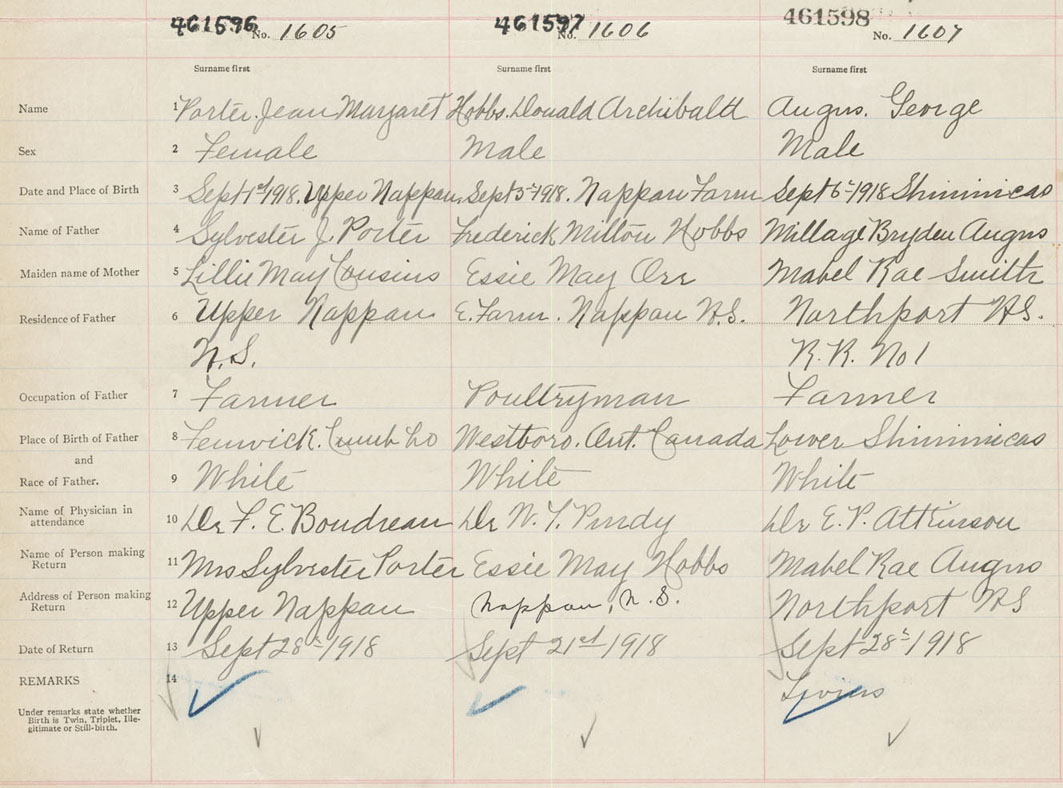 461596 No. 1605 461597 No. 1606 461598 No. 1607
Surname first Surname first Surname first
Name 1 Porter. Jean Margaret Hobbs. Donald Archibald Angus. George
Sex 2 Female Male Male
Date and Place of Birth 3 Sept 1st 1918. Upper Nappan. Sept 3rd 1918. Nappan Farm Sept 6th 1918 Shinimicas
Name of Father 4 Sylvester J. Porter Frederick Milton Hobbs Millage Bryden Angus
Maiden name of Mother 5 Lillie May Cousins Essie May Orr Mabel Rae Smith
Residence of Father 6 Upper Nappan E. Farm. Nappan N.S. Northport N.S.
N.S. R.R. No 1
Occupation of Father 7 Farmer Poultryman Farmer
Place of Birth of Father 8 Fenwick. Cumb Co Westboro. Ont. Canada Lower Shinimicas
and
Race of Father. 9 White White White
Name of Physician in
attendance 10 Dr F. E. Boudreau Dr W. T. Purdy Dr E. P. Atkinson
Name of Person making
Return 11 Mrs Sylvester Porter Essie May Hobbs Mabel Rae Angus
Address of Person making
Return 12 Upper Nappan Nappan, N.S. Northport NS
Date of Return 13 Sept 28th 1918 Sept 21st 1918 Sept 28th 1918
REMARKS 14
Under remarks state whether
Birth is Twin, Triplet, Ille-
gitimate or Still-birth.